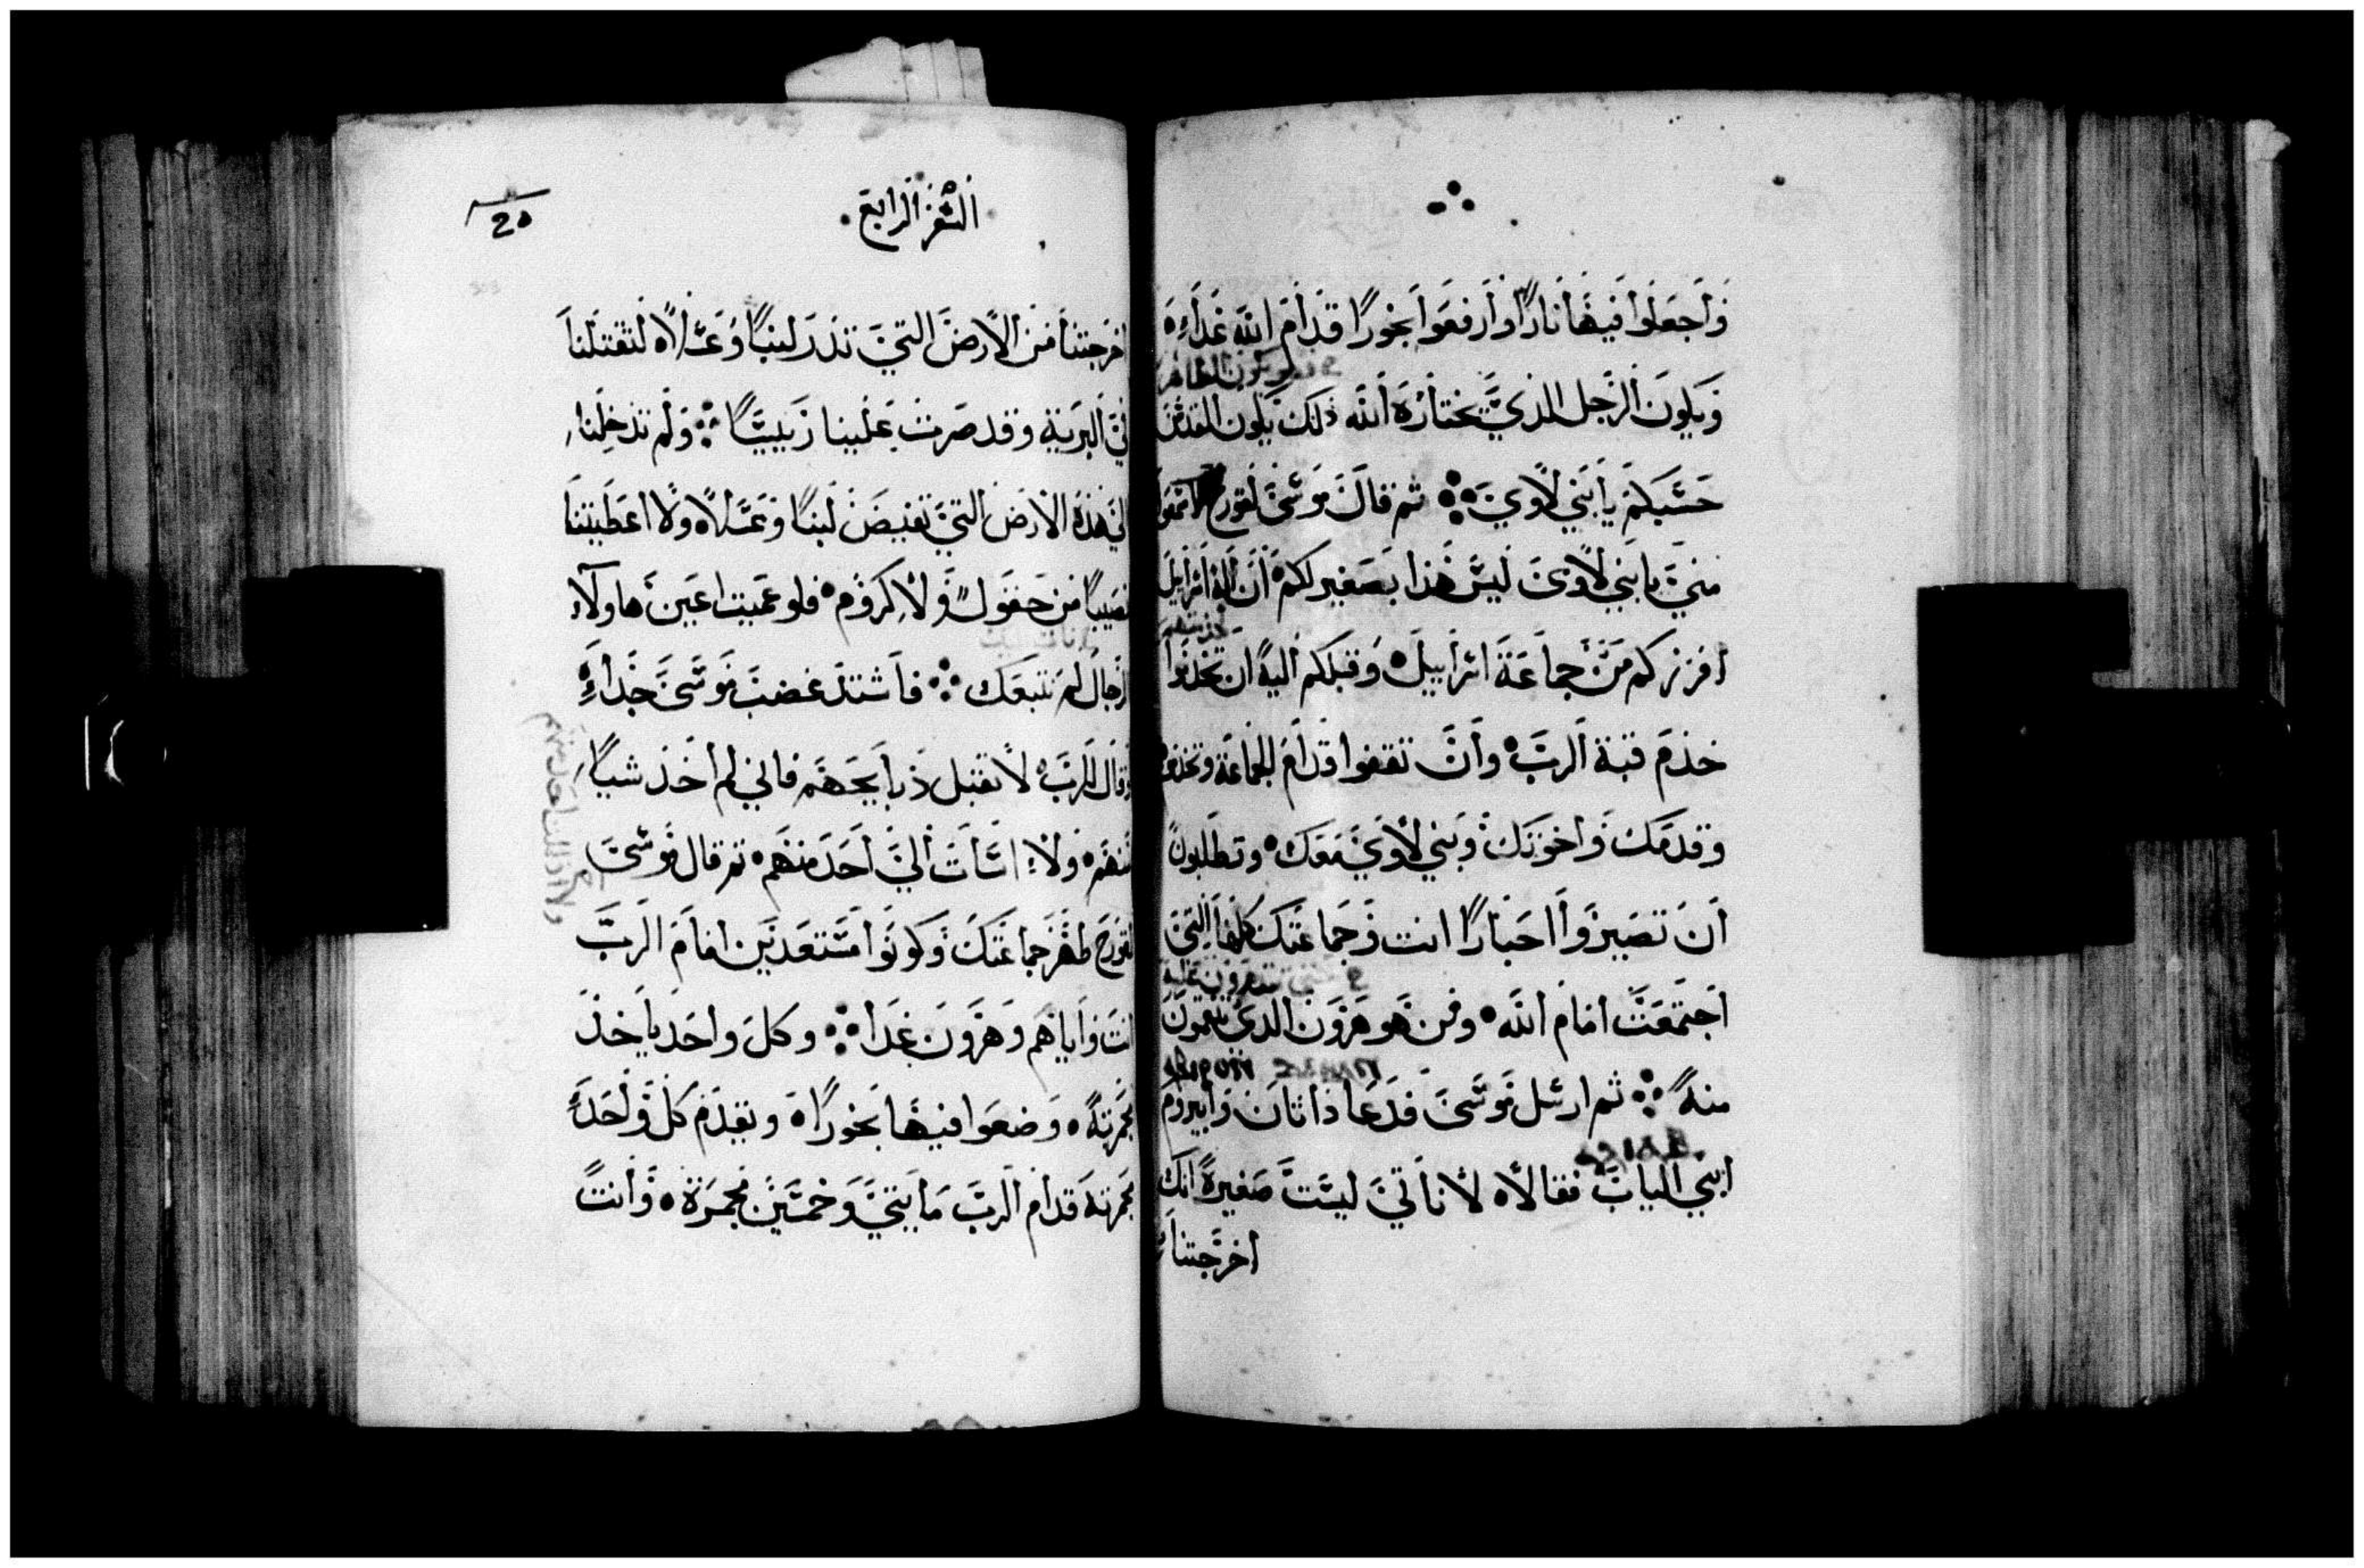 وَاجعَلوا فيهَا نارًا وارفعَوا بخورًا قدام الله غدًا
وَيكونَ الرَّجل الذي يختارهَ الله ذلك يكون المقدّسَ
حَسَبكم يا بَني لاوي ثم قالَ مُوسَى لقورح اسمَعوا
منيَ يا بني لاوى ليسَ هذا بصَغير لكم ان اله اسرايل
افرزكم منَ جماعَة اسرايل وَقبلكم اليه ان تخدَموا
خدمَ قبة الربَ وانَ تقفوا قدام الجماعَة وتخدمو
وقدمَك وَاخوَتك وبَني لاوَي مَعَك وتطلبونَ
اَن تصَيروَا احبَارًا انت وَجَماعَتك كلهَا التي
اجتمعَت امَام الله ومَن هَو هَرَون الذي تتقمَونَ
منهَ ثم ارسَل مُوسَى فدَعَا داثانَ وابيروم
ابني الياب فقالا لا ناتيَ ليسَت صَغيرةً انكَ
اخرجَتنا
السّفر الرابع
20
اخرَجتنا مَن الارضَ التيَ تدَر لبنًا وَعسَلا لتقتلنا
في البرَيَة وقد صَرت عَلينا رَييسًا وَلم تدخلنا
الي هَذه الارضَ التي تفيضَ لبنًا وعسَلا ولا اعطَيتنا
نصَيبًا مَن حَقول وَلا كرَوم فلو عَميت اعَينَ هاولاء
الرجال لم نتبعَك فاَشتدَ غضبَ مُوسَى جَدًا
وَقال للربَ لا تقبل ذبايحَهَم فاني لم اخَذ شيًا
مَنهَم ولا اسَات اليَ احَد منهَم ثم قال مُوسَىَ
لقورَح طهَر جَماعَتكَ وكونَوا مسَتعَدينَ امَامَ الربَ
انتَ وَاياهَم وَهَرَونَ غدَا وكلَ واحَد ياخذَ
مجمَرتهَ وَضعَوا فيهَا بَخورًا وتقدَم كل وَاحَد
مجمَرتهَ قدام الربَ مَايتيَ وَخمَسينَ مجمَرَة وَانتَ